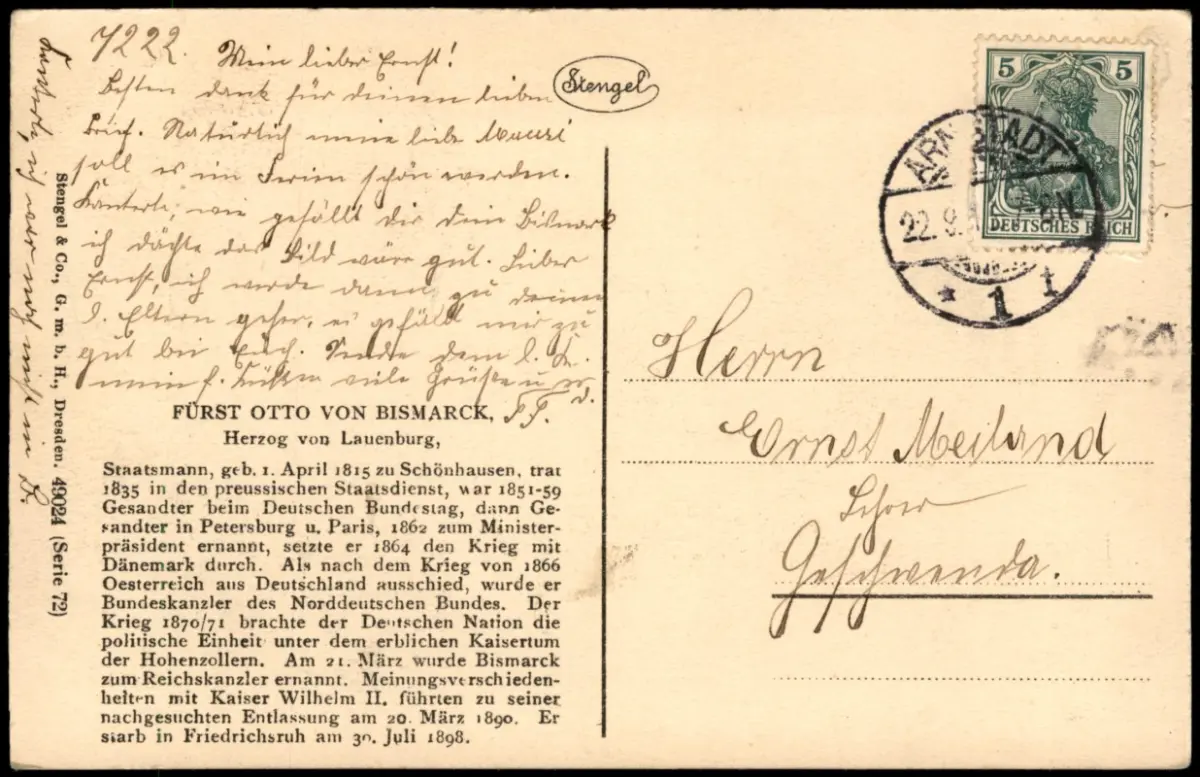 7222. Mein lieber Ernst!
Besten dank für deinen lieben
Brief. Natürlich meine liebe
soll es in Ferien schön werden.
wie gefällt dir dein Bismark
ich dächte das Bild wäre gut. Lieber
Ernst, ich werde dann zu deinen
l. Eltern gehen, es gefällt mir zu
gut bei Euch. Sende dem l.
mein f. viele Grüße u.
d.
ich war noch nicht in
Stengel
Stengel & Co., G. m. b. H., Dresden. 49024 (Serie 72)
FÜRST OTTO VON BISMARCK,
Herzog von Lauenburg,
Staatsmann, geb. 1. April 1815 zu Schönhausen, trat
1835 in den preussischen Staatsdienst, war 1851-59
Gesandter beim Deutschen Bundestag, dann Ge-
sandter in Petersburg u. Paris, 1862 zum Minister-
präsident ernannt, setzte er 1864 den Krieg mit
Dänemark durch. Als nach dem Krieg von 1866
Oesterreich aus Deutschland ausschied, wurde er
Bundeskanzler des Norddeutschen Bundes. Der
Krieg 1870/71 brachte der Deutschen Nation die
politische Einheit unter dem erblichen Kaisertum
der Hohenzollern. Am 21. März wurde Bismarck
zum Reichskanzler ernannt. Meinungsverschieden-
heiten mit Kaiser Wilhelm II. führten zu seiner
nachgesuchten Entlassung am 20. März 1890. Er
starb in Friedrichsruh am 30. Juli 1898.
5 5
DEUTSCHES REICH
ARNSTADT
22. 9.
* 1 t
Herrn
Ernst Meiland
Geschwenda.